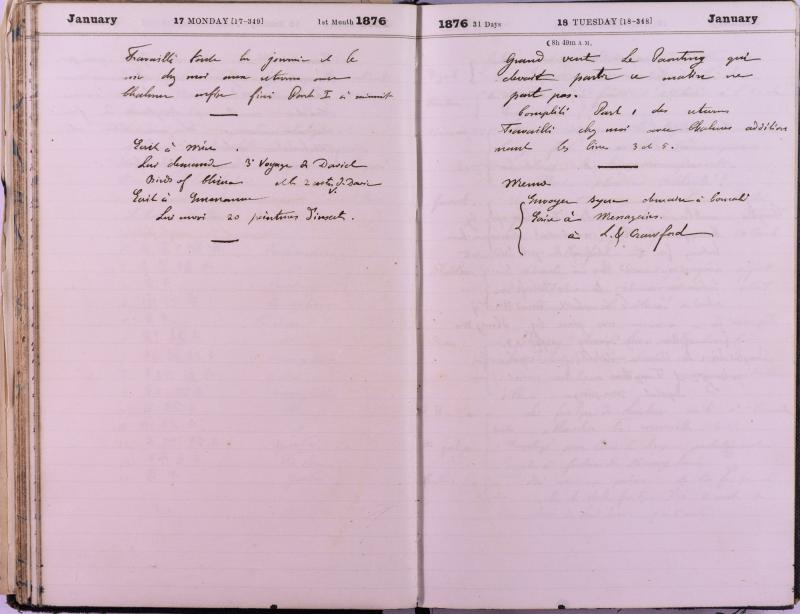 January 17 MONDAY [17-349] 1st Month 1876
Travaillé toute la journée et le
soir chez moi mon returns avec
Chalmer enfin fini Part I à minuit
Ecrit à
Lui demande 3e Voyage de David
Birds of China et
Ecrit à
Lui envoi 20 peintures d'insect.
1876 31 Days 18 TUESDAY [18-348] January
☾ 8h 49m A.M.
Grand vent le Paouting qui
devait partir ce matin ne
part pas.
Complété Part 1 des returns
Travaillé chez moi avec Chalmers addition
nant les livre 3 et 5.
Memo
Envoyer à
Ecrire à Menagerie.
à L. & Crawford